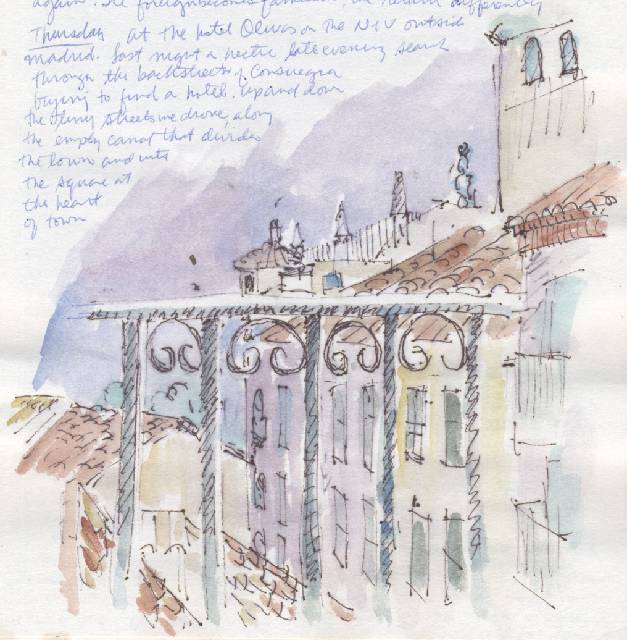 again. The foreign becomes familiar. We return differently
Thursday At the hotel Olivas on the NIV outside
Madrid. Last night a hectic late evening search
through the backstreets of Consuegra
trying to find a hotel. Up and down
the tiny streets we drove, along
the empty canal that divides
the town and into
the square at
the heart
of town